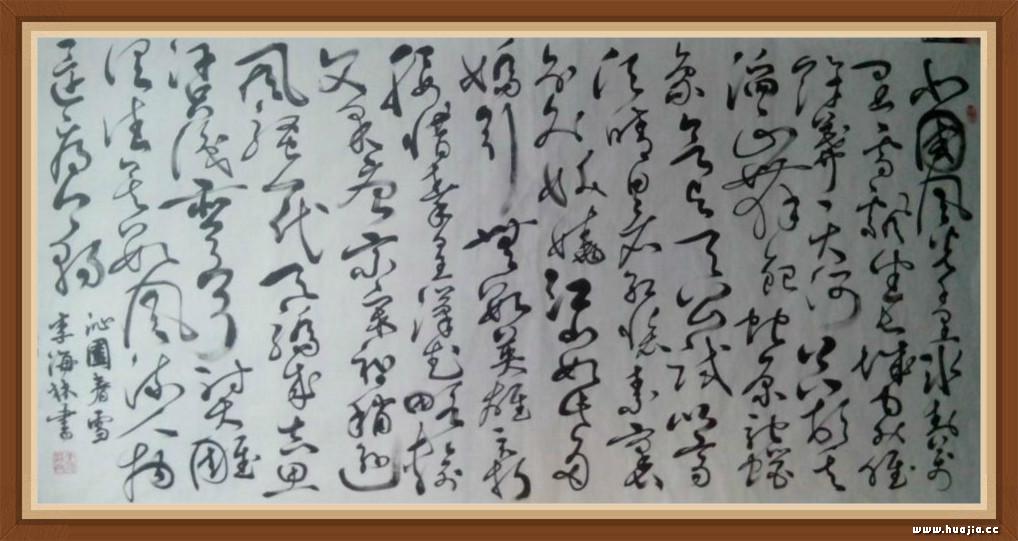 北國风光千里冰封万
里雪飘望长城内外惟
余莽莽大河上下顿失
滔滔山舞银蛇原驰蜡
象欲与天公试比高
须晴日看红装素裹
分外妖娆江山如此多
娇引無数英雄竞折
腰惜秦皇汉武略输
文采唐宗宋祖稍逊
风骚一代天骄成吉思
汗只识弯弓射大雕
俱往矣数风流人物
还看今朝
沁園春雪
李海林書
www.huajia.cc